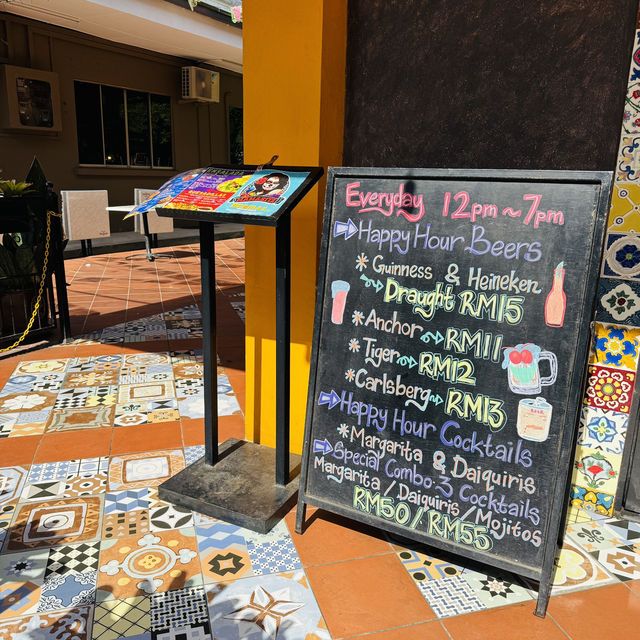 Everyday 12pm ~ 7pm
Happy Hour Beers
* Guinness & Heineken
Draught RM15
* Anchor RM11
* Tiger RM12
* Carlsberg RM13
Happy Hour Cocktails
* Margarita & Daiquiris
Special Combo-3 Cocktails
Margarita / Daiquiris / Mojitos
RM50 / RM55